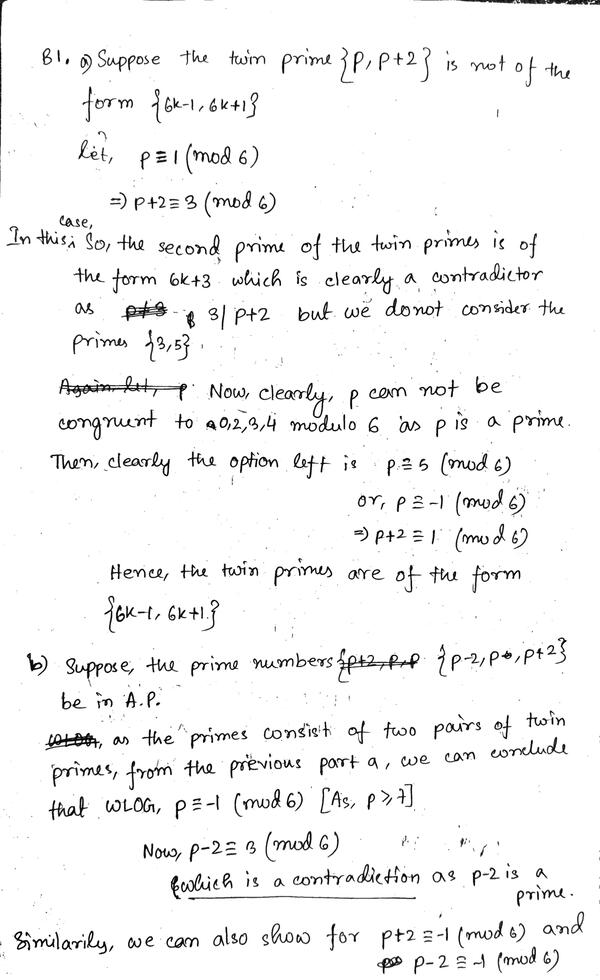 B1. a) Suppose the twin prime {P, P+2} is not of the
form {6k-1, 6k+1}
let, p ≡ 1 (mod 6)
⇒ p+2 ≡ 3 (mod 6)
In this case, So, the second prime of the twin primes is of
the form 6k+3 which is clearly a contradictor
as 3 | p+2 but we donot consider the
primes {3,5}.
Again let, p Now, clearly, p can not be
congruent to 0,2,3,4 modulo 6 as p is a prime.
Then, clearly the option left is p ≡ 5 (mod 6)
or, p ≡ -1 (mod 6)
⇒ p+2 ≡ 1 (mod 6)
Hence, the twin primes are of the form
{6k-1, 6k+1}
b) Suppose, the prime numbers {p+2, p, p {p-2, p, p+2}
be in A.P.
WLOG, as the primes consist of two pairs of twin
primes, from the previous part a, we can conclude
that WLOG, p ≡ -1 (mod 6) [As, p ≥ 7]
Now, p-2 ≡ 3 (mod 6)
which is a contradiction as p-2 is a
prime.
Similarily, we can also show for p+2 ≡ -1 (mod 6) and
p-2 ≡ -1 (mod 6)